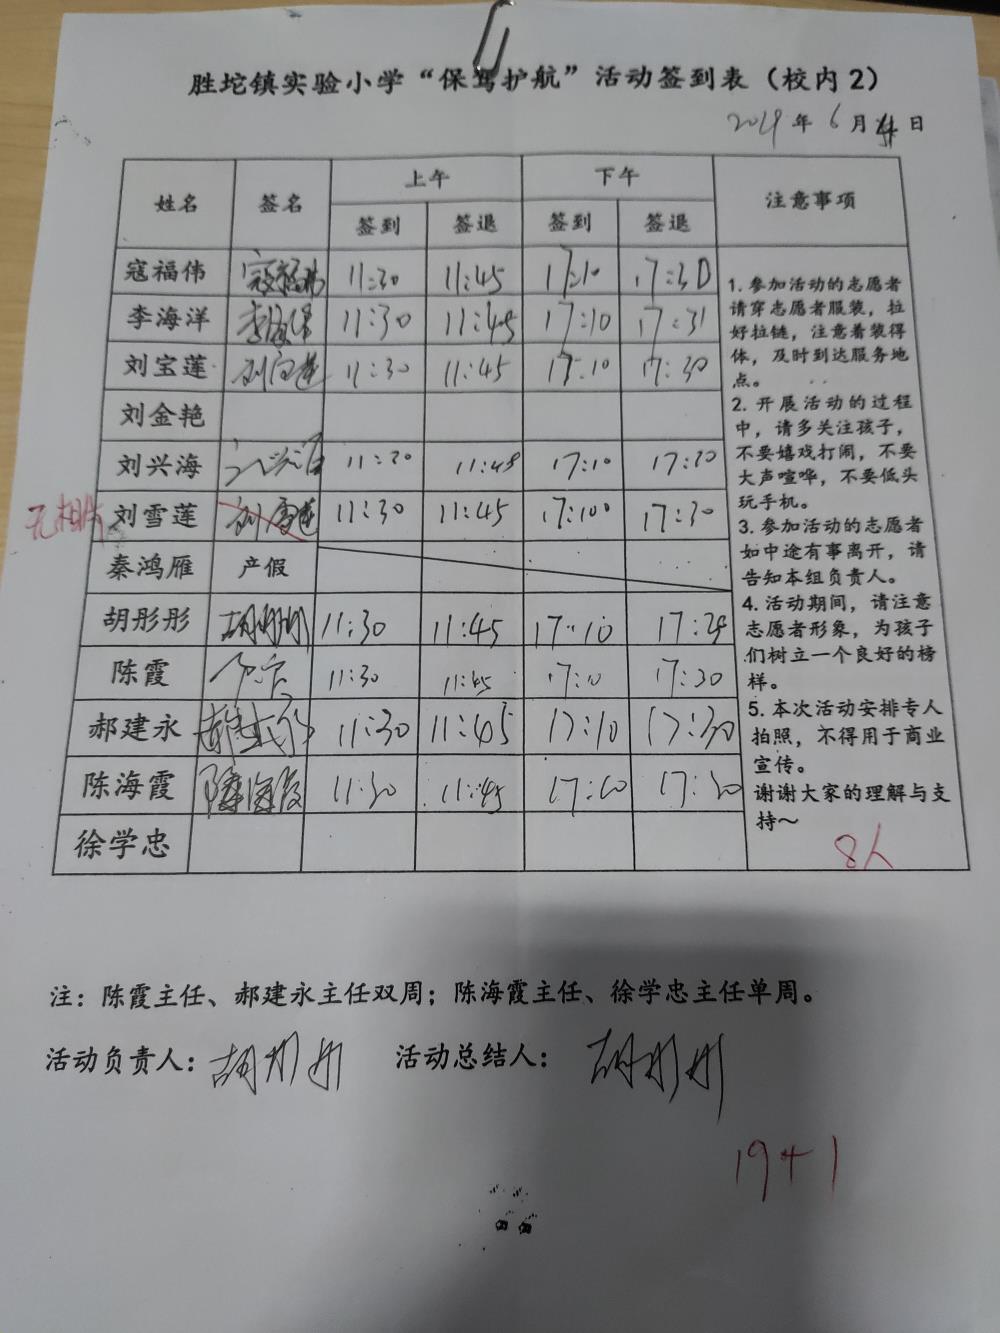 胜坨镇实验小学“保驾护航”活动签到表（校内2）
2019年6月 日
姓名 签名 上午 下午 注意事项
签到 签退 签到 签退
寇福伟 寇福伟 11:30 11:45 17:10 17:30
李海洋 李海洋 11:30 11:45 17:10 17:31
刘宝莲 刘宝莲 11:30 11:45 17:10 17:30
刘金艳
刘兴海 刘兴海 11:30 11:45 17:10 17:30
无相片 刘雪莲 刘雪莲 11:30 11:45 17:100 17:30
秦鸿雁 产假
胡彤彤 胡彤彤 11:30 11:45 17:10 17:29
陈霞 陈霞 11:30 11:45 17:10 17:30
郝建永 郝建永 11:30 11:45 17:10 17:30
陈海霞 陈海霞 11:30 11:45 17:10 17:30
徐学忠
1. 参加活动的志愿者
请穿志愿者服装，拉
好拉链，注意着装得
体，及时到达服务地
点。
2. 开展活动的过程
中，请多关注孩子，
不要嬉戏打闹，不要
大声喧哗，不要低头
玩手机。
3. 参加活动的志愿者
如中途有事离开，请
告知本组负责人。
4. 活动期间，请注意
志愿者形象，为孩子
们树立一个良好的榜
样。
5. 本次活动安排专人
拍照，不得用于商业
宣传。
谢谢大家的理解与支
持～
8人
注：陈霞主任、郝建永主任双周；陈海霞主任、徐学忠主任单周。
活动负责人：胡彤彤 活动总结人：胡彤彤
19+1